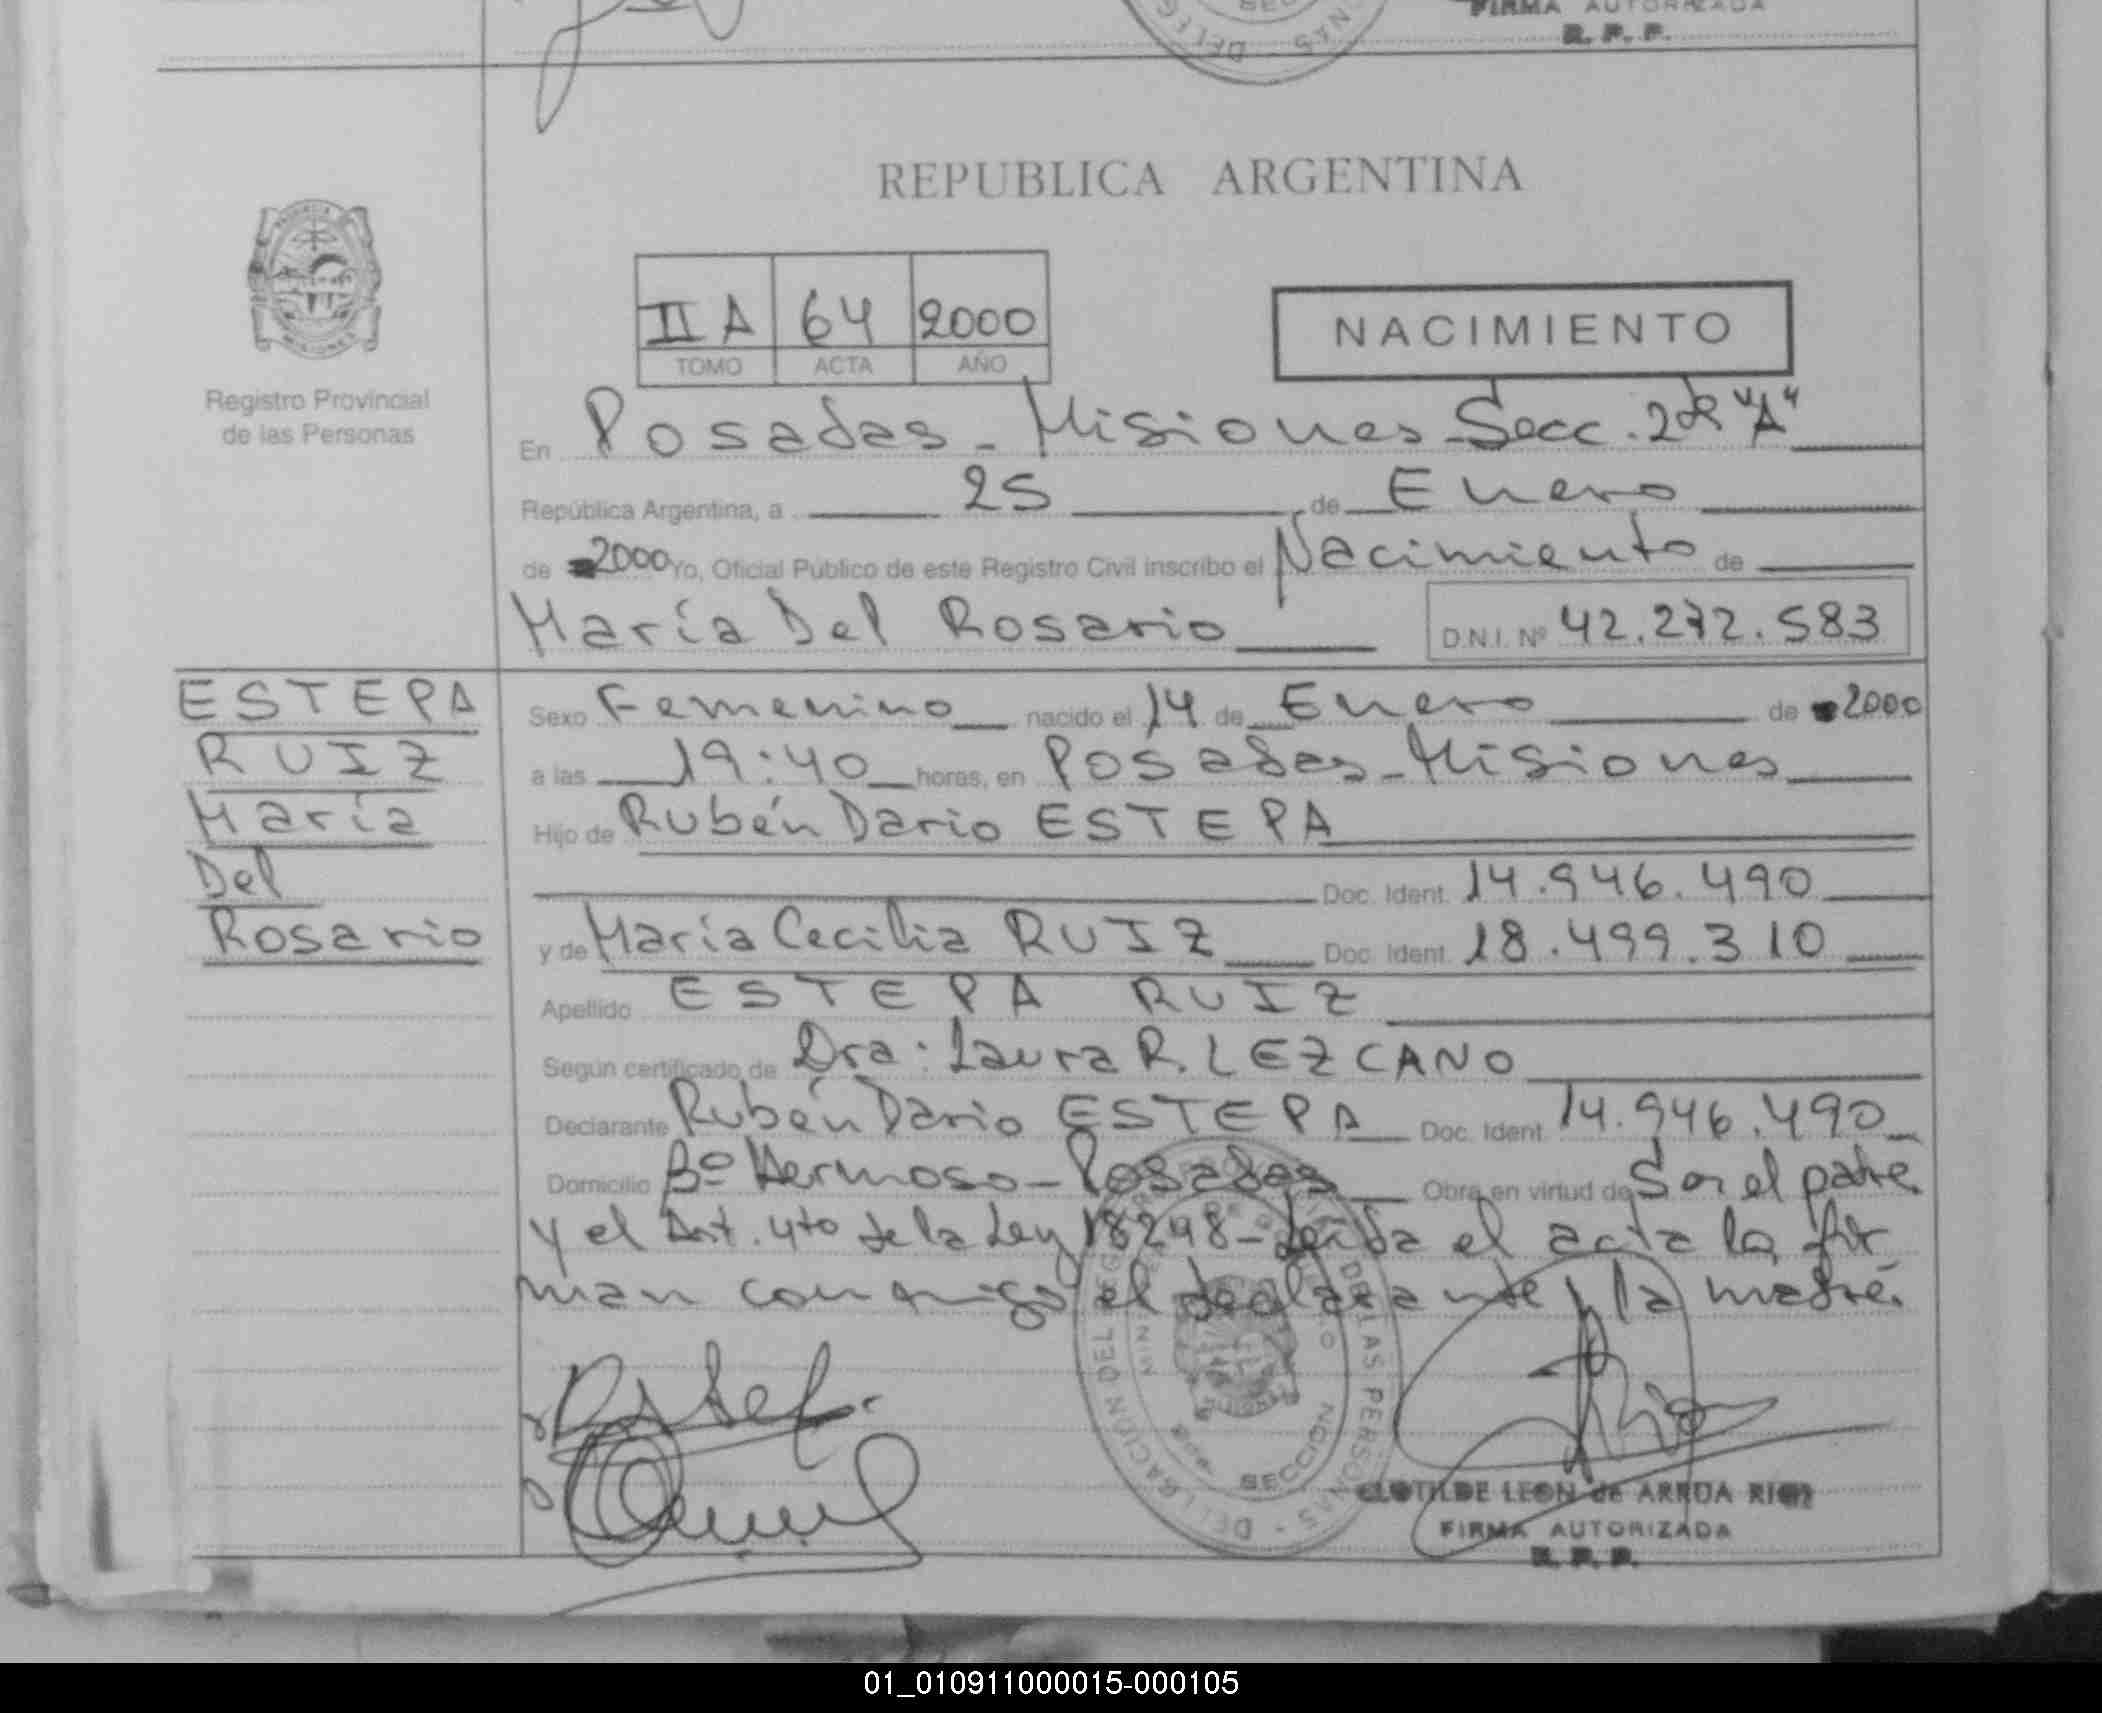 FIRMA AUTORIZADA
R. P. P.
REPUBLICA ARGENTINA
II A 64 2000
TOMO ACTA AÑO
NACIMIENTO
Registro Provincial
de las Personas
En Posadas - Misiones Secc. 2da "A"
República Argentina, a 25 de Enero
de 2000 Yo, Oficial Público de este Registro Civil inscribo el Nacimiento de
María Del Rosario D.N.I. Nº 42.272.583
ESTEPA
RUIZ
María
Del
Rosario
Sexo Femenino nacido el 14 de Enero de 2000
a las 19:40 horas, en Posadas - Misiones
Hijo de Rubén Dario ESTEPA
Doc. Ident. 14.946.490
y de María Cecilia RUIZ Doc. Ident. 18.499.310
Apellido ESTEPA RUIZ
Según certificado de Dra: Laura R. LEZCANO
Declarante Rubén Dario ESTEPA Doc. Ident. 14.946.490
Domicilio Bº Hermoso - Posadas Obra en virtud de Ser el padre
y el Art. 4to de la Ley 18248 - Leída el acta la fir
man conmigo el declarante y la madre.
DELEGACION DEL REGISTRO PROVINCIAL DE LAS PERSONAS
SECCION
CLOTILDE LEON de ARRUA RIOS
FIRMA AUTORIZADA
R. P. P.
01_010911000015-000105